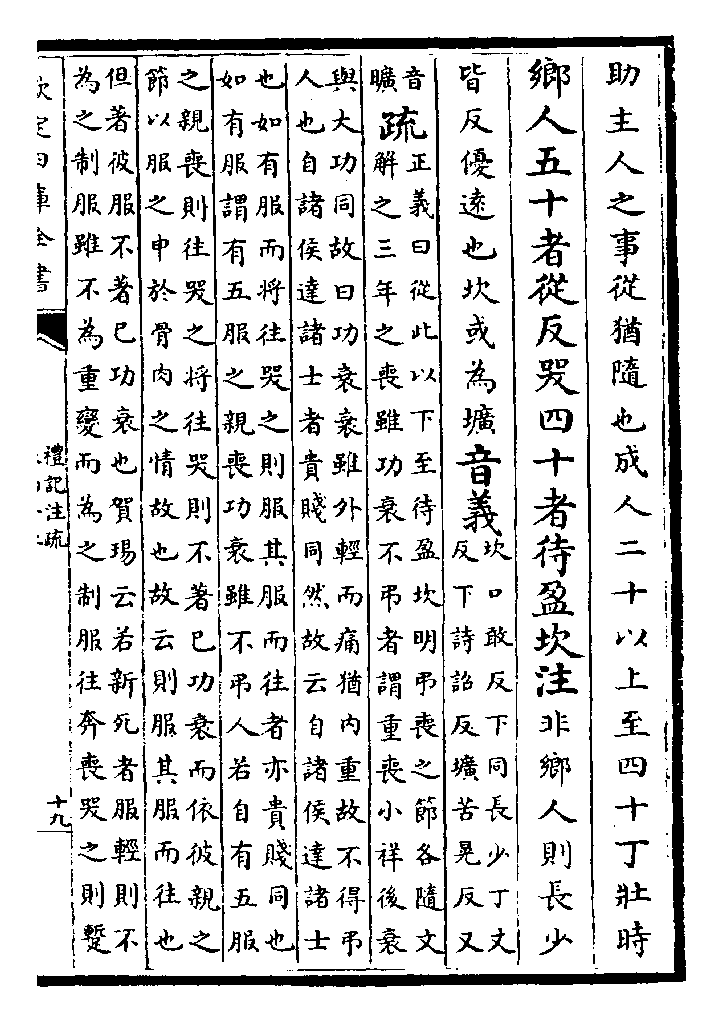 助主人之事從猶隨也成人二十以上至四十丁壯時
鄉人五十者從反哭四十者待盈坎注非鄉人則長少
皆反優遠也坎或為壙音義坎口敢反下同長少丁丈
反下詩詔反壙苦晃反又
音
曠疏正義曰從此以下至待盈坎明弔喪之節各隨文
解之三年之喪雖功衰不弔者謂重喪小祥後衰
與大功同故曰功衰衰雖外輕而痛猶內重故不得弔
人也自諸侯達諸士者貴賤同然故云自諸侯達諸士
也如有服而將往哭之則服其服而往者亦貴賤同也
如有服謂有五服之親喪功衰雖不弔人若自有五服
之親喪則往哭之將往哭則不著已功衰而依彼親之
節以服之申於骨肉之情故也故云則服其服而往也
但著彼服不著已功衰也賀瑒云若新死者服輕則不
為之制服雖不為重變而為之制服往奔喪哭之則蹔
欽定四庫全書
禮記注疏
十九